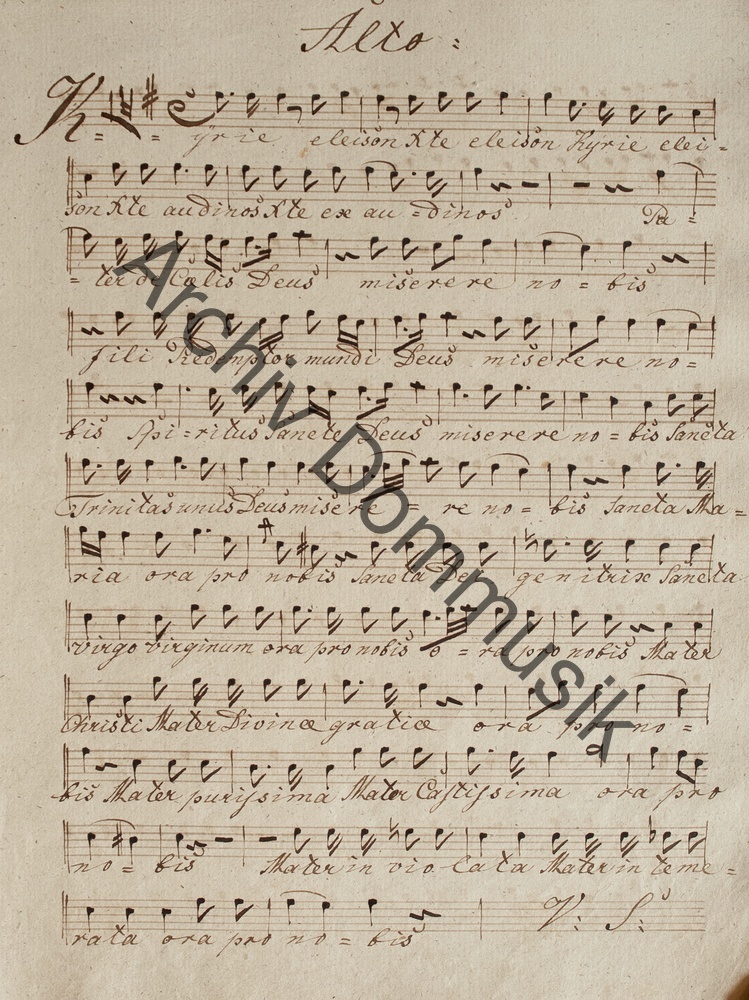 Alto:
Kyrie eleison Xte eleison Kyrie elei=
son Xte audinos Xte exau=dinos Pa=
=ter de Cœlis Deus miserere no=bis
fili Redemptor mundi Deus miserere no=
bis Spi=ritus Sancte Deus miserere no=bis Sancta
Trinitas unus Deus misere=re no=bis Sancta Ma=
ria ora pro nobis Sancta De genitrix Sancta
virgo virginum ora pro nobis o=ra pro nobis Mater
Christi Mater Divinæ gratiæ ora pro no=
bis Mater purissima Mater Castissima ora pro
no=bis Mater in violata Mater in teme=
rata ora pro no=bis V: S:
Archiv Dommusik